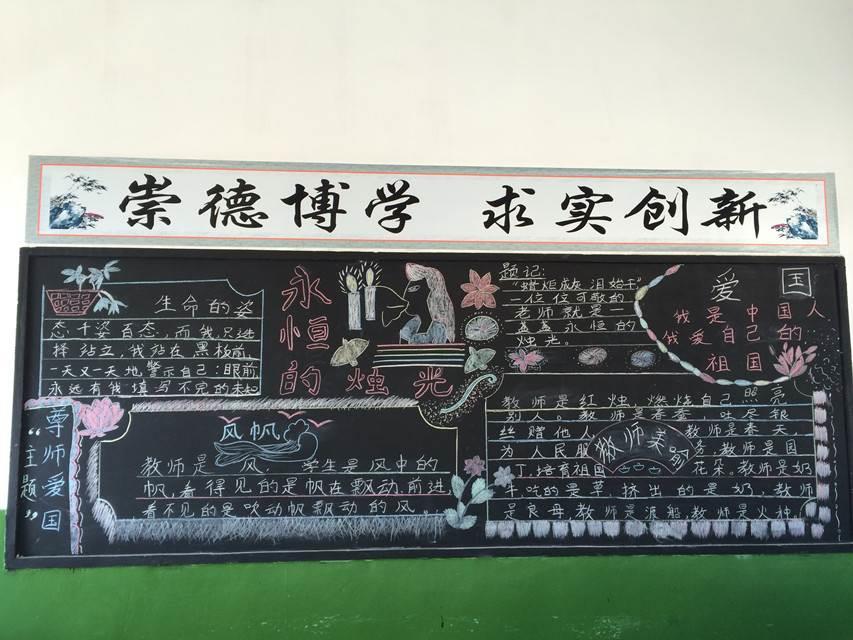 崇德博学 求实创新
生命的姿
态千姿百态，而我只选
择站立，我站在黑板前，
一天又一天地警示自己：眼前
永远有我填写不完的未知
永恒
的烛光
题记：
“蜡炬成灰泪始干”
一位位可敬的
老师就是一
盏盏永恒的
烛光。
爱国
我是中国人
我爱自己的
祖国
尊师爱国
“主题”
风帆
教师是风，学生是风中的
帆，看得见的是帆在飘动，前进
看不见的是吹动帆飘动的风。
教师美喻
教师是红烛 燃烧自己照亮
别人。教师是春蚕 吐尽银
丝赠他人 教师是春天，
为人民服务，教师是园
丁，培育祖国花朵。教师是奶
牛，吃的是草，挤出的是奶，教师
是良母教师是渡船教师是火种。